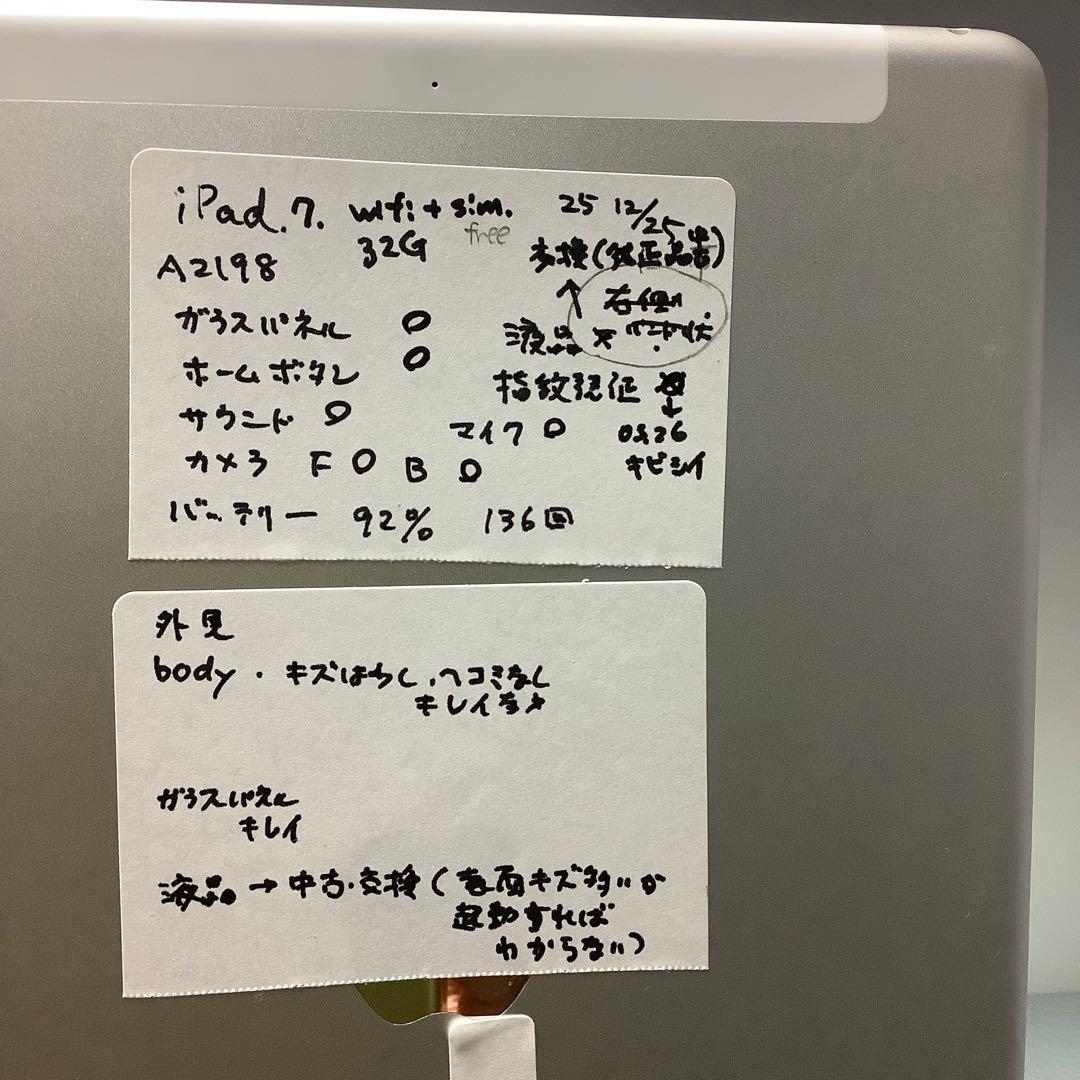 iPad.7. wifi + sim. 25 12/25
32G free
A2198 交換(純正品中古)
ガラスパネル ○ 右側
液品
ホームボタン ○
指紋認証
サウンド ○
マイク ○ 0826
カメラ F ○ B ○ キビシイ
バッテリー 92% 136回
外見
body . キズはちく,ヘコミなし
キレイなオ
ガラスパネル
キレイ
液品 → 中古.交換 (表面キズ多いが
起動すれば
わからない)